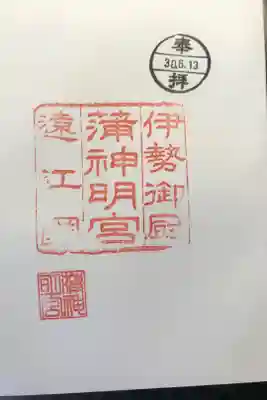 奉拝
30.6.13
伊勢御厨
蒲神明宮
遠江国